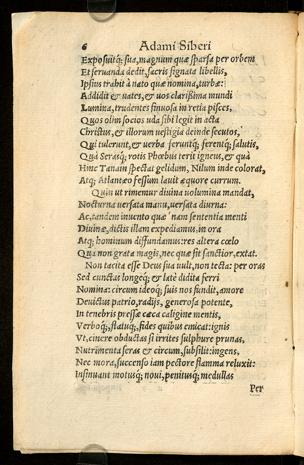 6 Adami Siberi
Exposuitq́; sua, magnum quæ sparsa per orbem
Et seruanda dedit, sacris signata libellis,
Ipsius trahit à nato quæ nomina, turbæ:
Addidit & nates, & uos clarißima mundi
Lumina, trudentes sinuosa in retia pisces,
Quos olim socios uda sibi legit in acta
Christus, & illorum uestigia deinde secutos,
Qui tulerunt, & uerba serunt q́;, ferent q́;, salutis,
Quà Serasq́;, rotis Phœbus terit igneus, & quà
Hinc Tanain spectat gelidum, Nilum inde colorat,
Atq́; Atlanteo fessum lauit æquore currum.
Quin ut rimemur diuina uolumina mandat,
Nocturna uersata manu, uersata diurna:
Ac, tandem inuento quæ nam sententia menti
Diuinæ, dictis illam expediamus, in ora
Atq́; hominum diffundamus: res altera cœlo
Qua non grata magis, nec quæ sit sanctior, extat.
Non tacita esse Deus sua uult, non tecta: per oras
Sed cunctas longeq́; & latè didita ferri
Nomina: circum ideoq́; suis nos fundit, amore
Deuictus patrio, radijs, generosa potente,
In tenebris pressæ cæca caligine mentis,
Verboq́;, flatuq́;, fides quibus emicat: ignis
Vt, cinere obductas si irrites sulphure prunas,
Nutrimenta feras & circum, subsilit: ingens,
Nec mora, succenso iam pectore flamma reluxit:
Insinuant motusq́; noui, penitusq́; medullas
Per